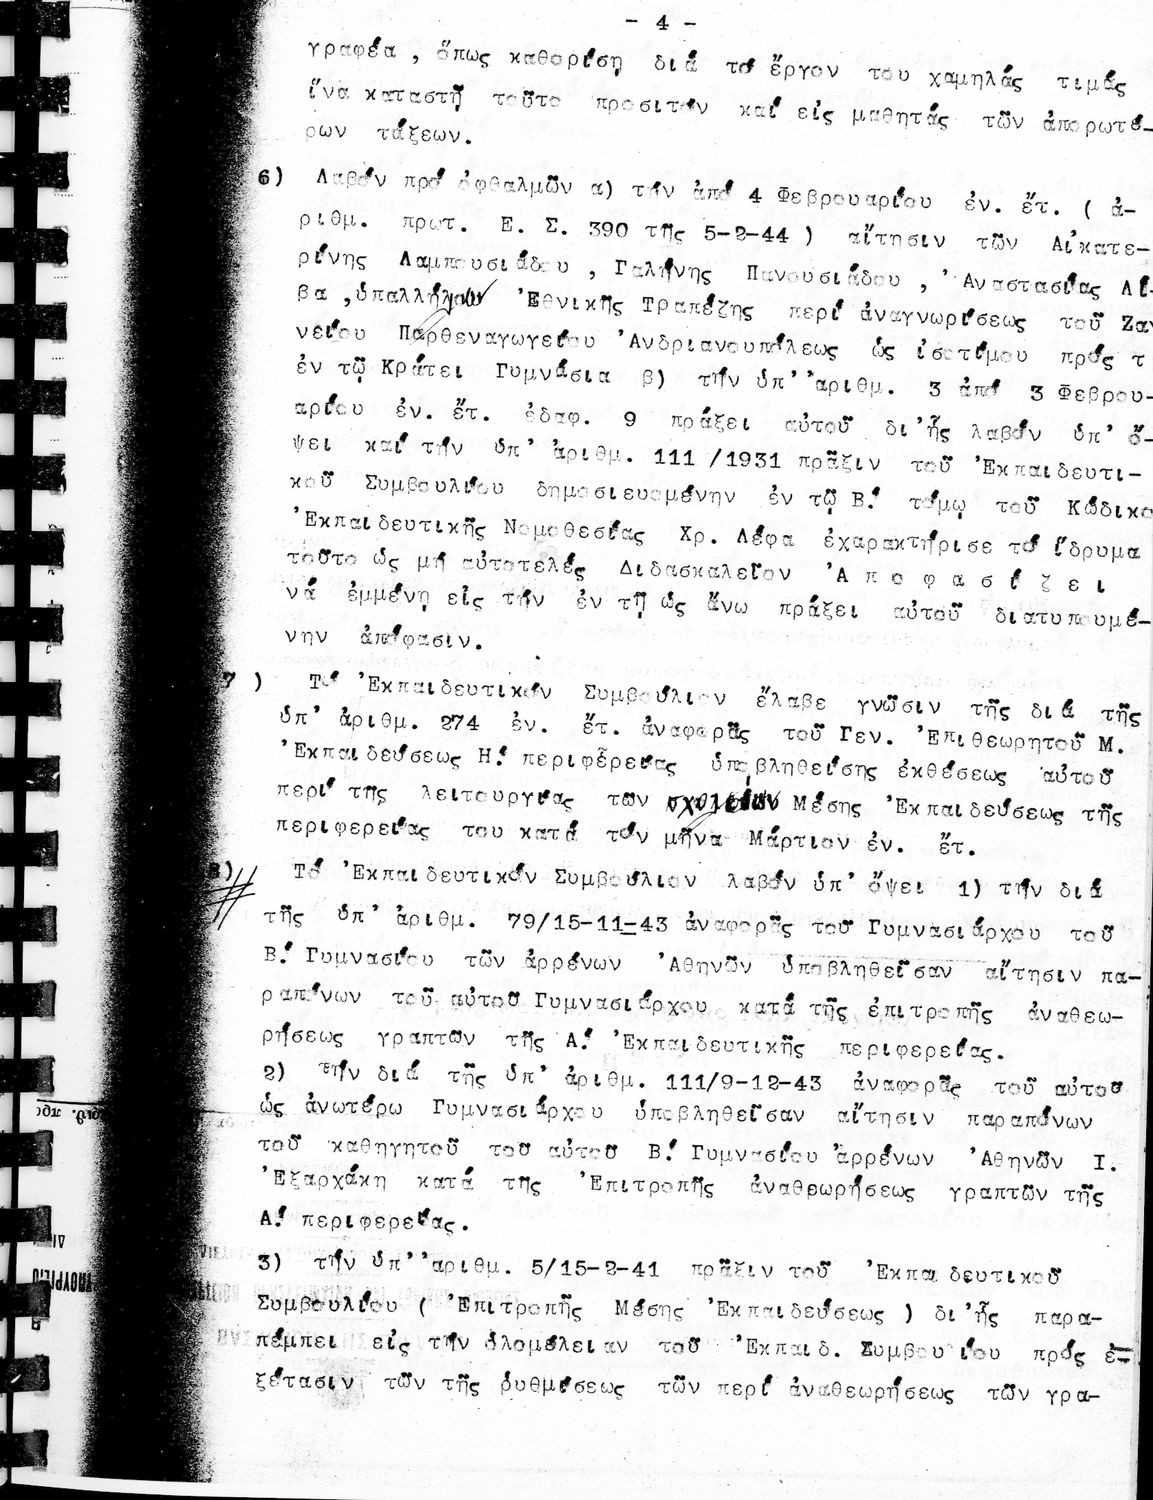 - 4 -
γραφέα , ὅπως καθορίσῃ διά τό ἔργον του χαμηλάς τιμάς
ἵνα καταστῇ τοῦτο προσιτόν καί εἰς μαθητάς τῶν ἀπορωτέ-
ρων τάξεων.
6) Λαβόν πρό ὀφθαλμῶν α) τήν ἀπό 4 Φεβρουαρίου ἐν. ἔτ. ( ἀ-
ριθμ. πρωτ. Ε. Σ. 390 τῆς 5-2-44 ) αἴτησιν τῶν Αἰκατε-
ρίνης Λαμπουσιάδου , Γαλήνης Πανουσιάδου , 'Αναστασίας Λί-
βα ,ὑπαλλήλων 'Εθνικῆς Τραπέζης περί ἀναγνωρίσεως τοῦ Ζαν
νείου Παρθεναγωγείου 'Ανδριανουπόλεως ὡς ἰσοτίμου πρός τ
ἐν τῷ Κράτει Γυμνάσια β) τήν ὑπ' ἀριθμ. 3 ἀπό 3 Φεβρου-
αρίου ἐν. ἔτ. ἐδαφ. 9 πράξει αὐτοῦ δι'ἧς λαβόν ὑπ' ὄ-
ψει καί τήν ὑπ' ἀριθμ. 111 /1931 πρᾶξιν τοῦ 'Εκπαιδευτι-
κοῦ Συμβουλίου δημοσιευομένην ἐν τῷ Β! τόμῳ τοῦ Κώδικο
'Εκπαιδευτικῆς Νομοθεσίας Χρ. Λέφα ἐχαρακτήρισε τό ἵδρυμα
τοῦτο ὡς μή αὐτοτελές Διδασκαλεῖον 'Α π ο φ α σ ί ζ ε ι
νά ἐμμένῃ εἰς τήν ἐν τῇ ὡς ἄνω πράξει αὐτοῦ διατυπουμέ-
νην ἀπόφασιν.
7 ) Τό 'Εκπαιδευτικόν Συμβούλιον ἔλαβε γνῶσιν τῆς διά τῆς
ὑπ' ἀριθμ. 274 ἐν. ἔτ. ἀναφορᾶς τοῦ Γεν. 'Επιθεωρητοῦ Μ.
'Εκπαιδεύσεως Η! περιφερείας ὑποβληθείσης ἐκθέσεως αὐτοῦ
περί τῆς λειτουργίας τῶν σχολείων Μέσης 'Εκπαιδεύσεως τῆς
περιφερείας του κατά τόν μῆνα Μάρτιον ἐν. ἔτ.
8) Τό 'Εκπαιδευτικόν Συμβούλιον λαβόν ὑπ' ὄψει 1) τήν διά
τῆς ὑπ' ἀριθμ. 79/15-11-43 ἀναφορᾶς τοῦ Γυμνασιάρχου τοῦ
Β! Γυμνασίου τῶν ἀρρένων 'Αθηνῶν ὑποβληθεῖσαν αἴτησιν πα-
ραπόνων τοῦ αὐτοῦ Γυμνασιάρχου κατά τῆς ἐπιτροπῆς ἀναθεω-
ρήσεως γραπτῶν τῆς Α! 'Εκπαιδευτικῆς περιφερείας.
2) Τήν διά τῆς ὑπ' ἀριθμ. 111/9-12-43 ἀναφορᾶς τοῦ αὐτοῦ
ὡς ἀνωτέρω Γυμνασιάρχου ὑποβληθεῖσαν αἴτησιν παραπόνων
τοῦ καθηγητοῦ τοῦ αὐτοῦ Β! Γυμνασίου ἀρρένων 'Αθηνῶν Ι.
'Εξαρχάκη κατά τῆς 'Επιτροπῆς ἀναθεωρήσεως γραπτῶν τῆς
Α! περιφερείας.
3) τήν ὑπ' ἀριθμ. 5/15-2-41 πρᾶξιν τοῦ 'Εκπαιδευτικοῦ
Συμβουλίου ( 'Επιτροπῆς Μέσης 'Εκπαιδεύσεως ) δι'ἧς παρα-
πέμπει εἰς τήν ὁλομέλειαν τοῦ 'Εκπαιδ. Συμβουλίου πρός ἐ-
ξέτασιν τῶν τῆς ρυθμίσεως τῶν περί ἀναθεωρήσεως τῶν γρα-